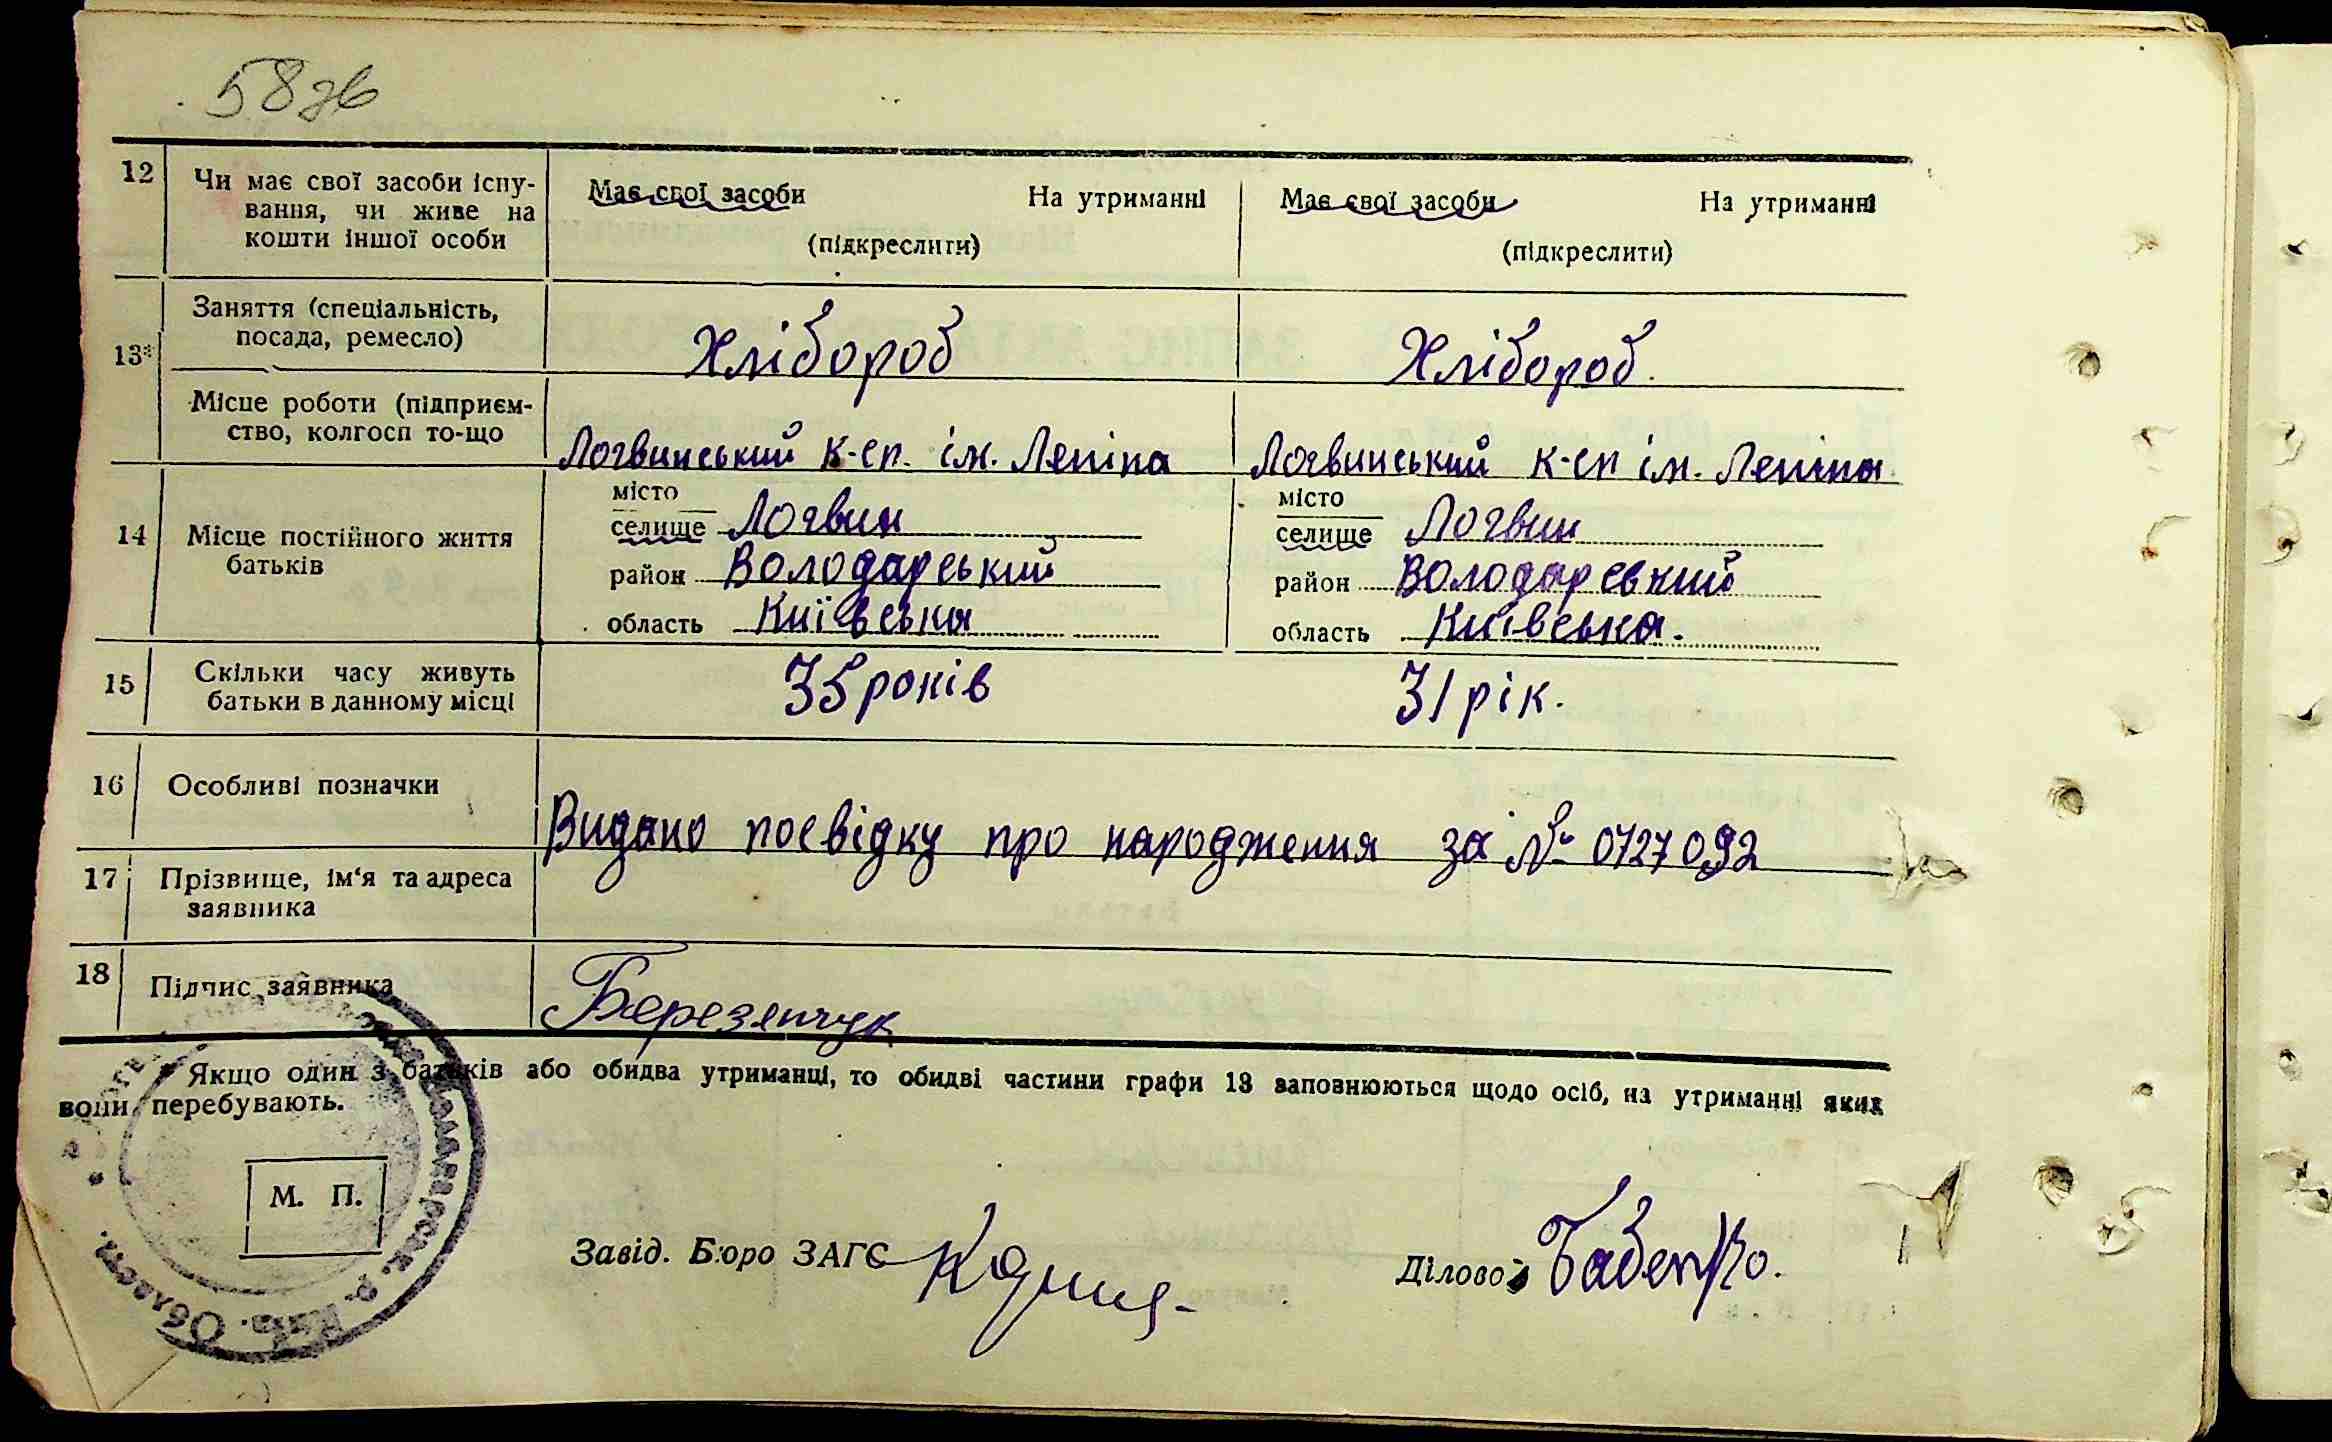 58зв
12 Чи має свої засоби існу-
вання, чи живе на
кошти іншої особи
Має свої засоби На утриманні
(підкреслити)
Має свої засоби На утриманні
(підкреслити)
13* Заняття (спеціальність,
посада, ремесло)
Хлібороб
Хлібороб.
Місце роботи (підприєм-
ство, колгосп то-що
Логвинський к-сп. ім. Леніна
Логвинський к-сп ім. Леніна
14 Місце постійного життя
батьків
місто
селище Логвин
район Володарський
область Київська
місто
селище Логвин
район Володарський
область Київська.
15 Скільки часу живуть
батьки в данному місці
35 років
31 рік.
16 Особливі позначки
Видано посвідку про народження за № 0727092
17 Прізвище, ім'я та адреса
заявника
18 Підпис заявника
Березянчук
* Якщо один з батьків або обидва утриманці, то обидві частини графи 13 заповнюються щодо осіб, на утриманні яких
вони перебувають.
М. П.
Володарськ. р. Київ. Області.
Завід. Бюро ЗАГС
Діловод Бабенко.